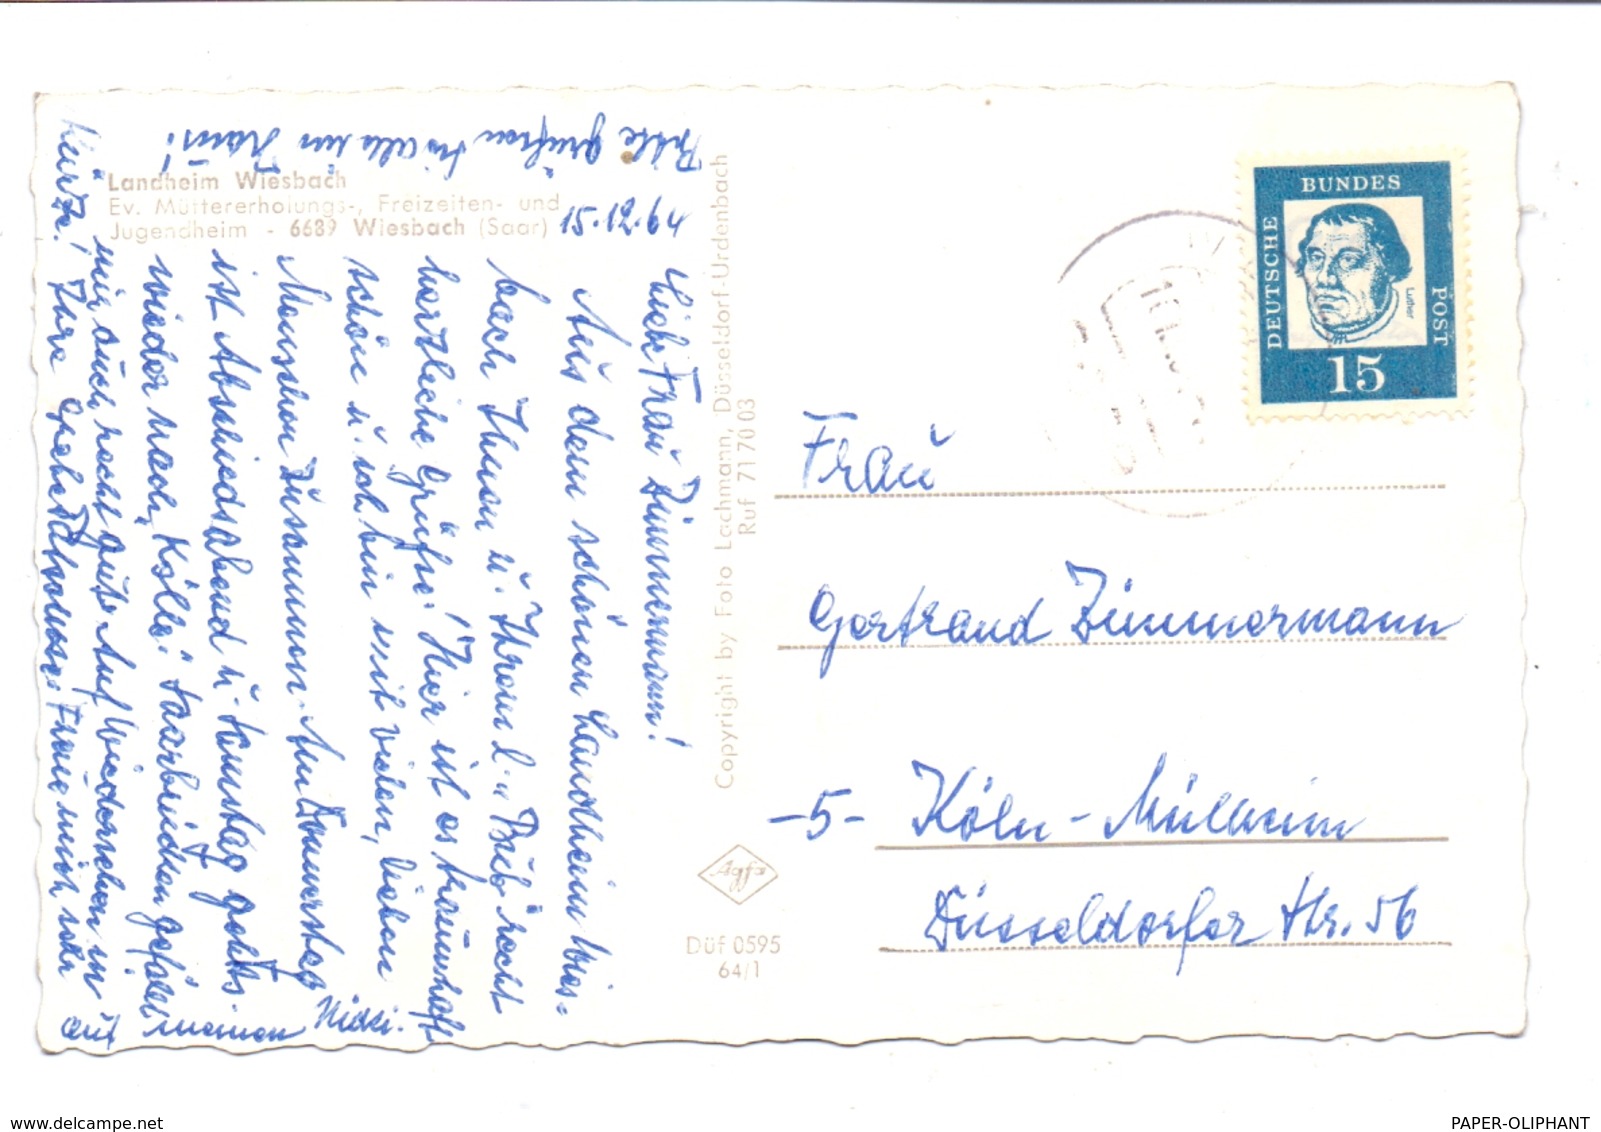 Landheim Wiesbach
Ev. Müttererholungs-, Freizeiten- und
Jugendheim - 6689 Wiesbach (Saar)
Bitte grüßen Sie alle im Haus!
Liebe Frau Zimmermann!
Aus dem schönen Landheim Wies-
bach Ihnen u. Ihrem l. Bub recht
herzliche Grüße! Hier ist es traumhaft
schön u. ich bin mit vielen, lieben
Menschen zusammen. Am Donnerstag
ist Abschiedsabend u. Samstag gehts
wieder nach Köln. Saarbrücken gefällt
mir auch recht gut. Auf Wiedersehen in
Kürze! Ihre
Freue mich sehr
auf meinen
Copyright by Foto Lachmann, Düsseldorf-Urdenbach
Ruf 71 70 03
Agfa
Düf 0595
64/1
DEUTSCHE
BUNDES
POST
Luther
15
Frau
Gertraud Zimmermann
-5- Köln-Mülheim
Düsseldorfer Str. 56
www.delcampe.net
PAPER-OLIPHANT